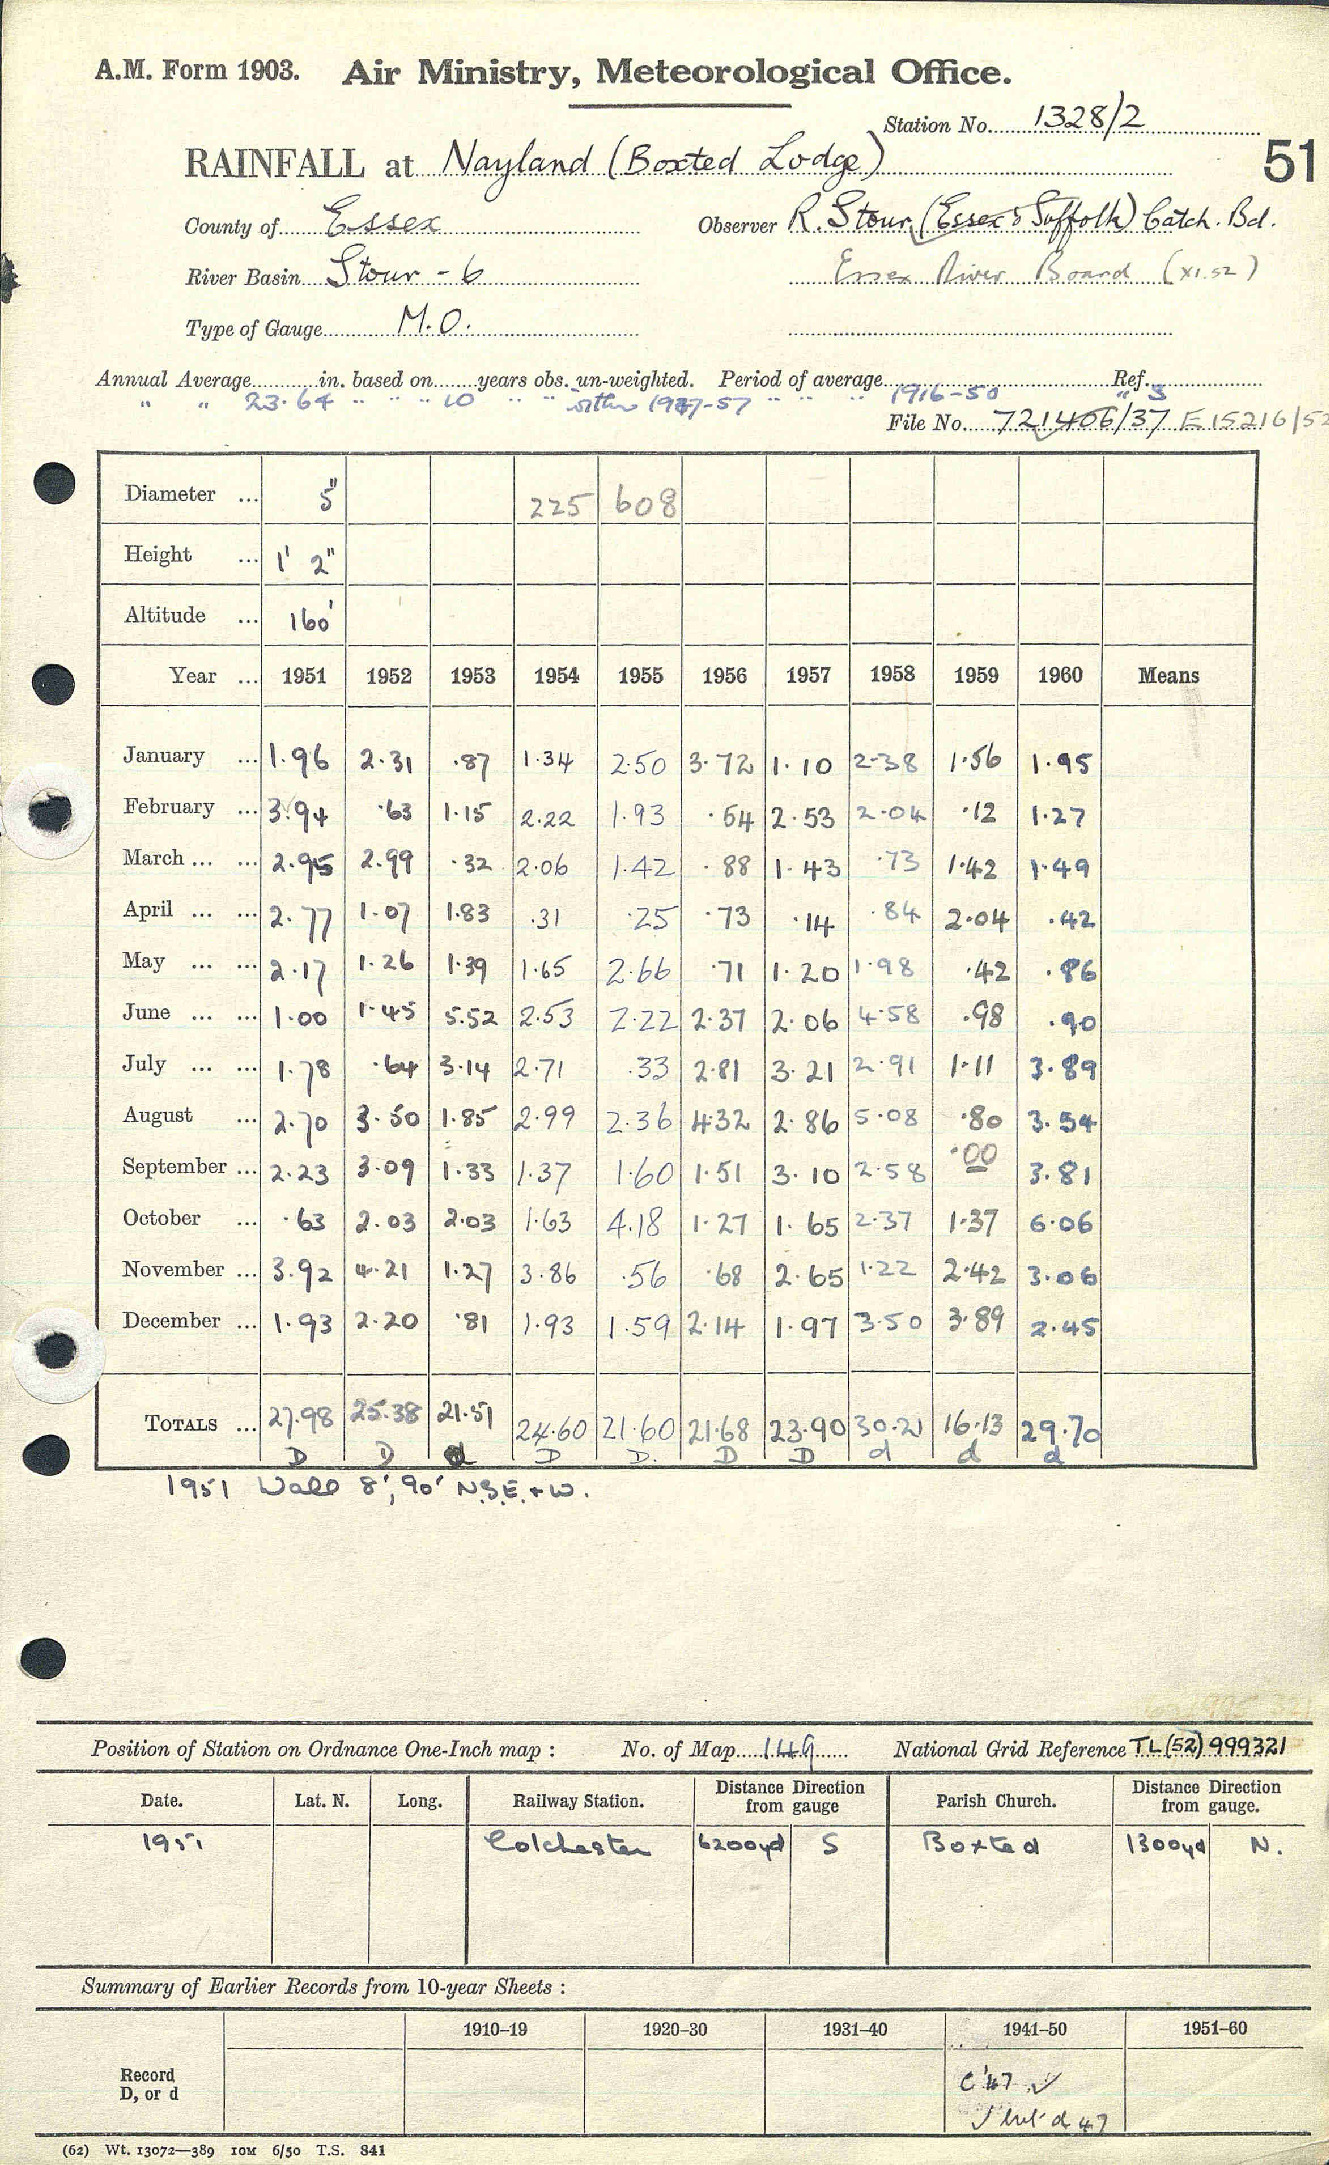 A.M. Form 1903. Air Ministry, Meteorological Office.
Station No. 1328/2
RAINFALL at Nayland (Boxted Lodge)
51
County of Essex Observer R. Stour (Essex & Suffolk) Catch. Bd.
River Basin Stour - 6 Essex River Board (XI.52)
Type of Gauge M.O.
Annual Average in. based on years obs. un-weighted. Period of average Ref.
" " 23.64 " " " 10 " " 1937-57 " " " 1916-50 " 3
File No. 721406/37 E15216/52
Diameter ... 5" 225 608
Height ... 1' 2"
Altitude ... 160'
Year ... 1951 1952 1953 1954 1955 1956 1957 1958 1959 1960 Means
January ... 1.96 2.31 .87 1.34 2.50 3.72 1.10 2.38 1.56 1.95
February ... 3.94 .63 1.15 2.22 1.93 .54 2.53 2.04 .12 1.27
March ... ... 2.95 2.99 .32 2.06 1.42 .88 1.43 .73 1.42 1.49
April ... ... 2.77 1.07 1.83 .31 .25 .73 .14 .84 2.04 .42
May ... ... 2.17 1.26 1.39 1.65 2.66 .71 1.20 1.98 .42 .86
June ... ... 1.00 1.45 5.52 2.53 2.22 2.37 2.06 4.58 .98 .90
July ... ... 1.78 .64 3.14 2.71 .33 2.81 3.21 2.91 1.11 3.89
August ... 2.70 3.50 1.85 2.99 2.36 4.32 2.86 5.08 .80 3.54
September ... 2.23 3.09 1.33 1.37 1.60 1.51 3.10 2.58 .00 3.81
October ... .63 2.03 2.03 1.63 4.18 1.27 1.65 2.37 1.37 6.06
November ... 3.92 4.21 1.27 3.86 .56 .68 2.65 1.22 2.42 3.06
December ... 1.93 2.20 .81 1.93 1.59 2.14 1.97 3.50 3.89 2.45
TOTALS ... 27.98 25.38 21.51 24.60 21.60 21.68 23.90 30.21 16.13 29.70
D D d D D. D D d d d
1951 Wall 8', 90' N.S.E. + W.
Position of Station on Ordnance One-Inch map : No. of Map 149 National Grid Reference TL (52) 999321
Date. Lat. N. Long. Railway Station. Distance Direction from gauge Parish Church. Distance Direction from gauge.
1951 Colchester 6200yd S Boxted 1300yd N.
Summary of Earlier Records from 10-year Sheets :
1910–19 1920–30 1931–40 1941–50 1951–60
Record D, or d
C'47 ✓
d 47
(62) Wt. 13072—389 10M 6/50 T.S. 841